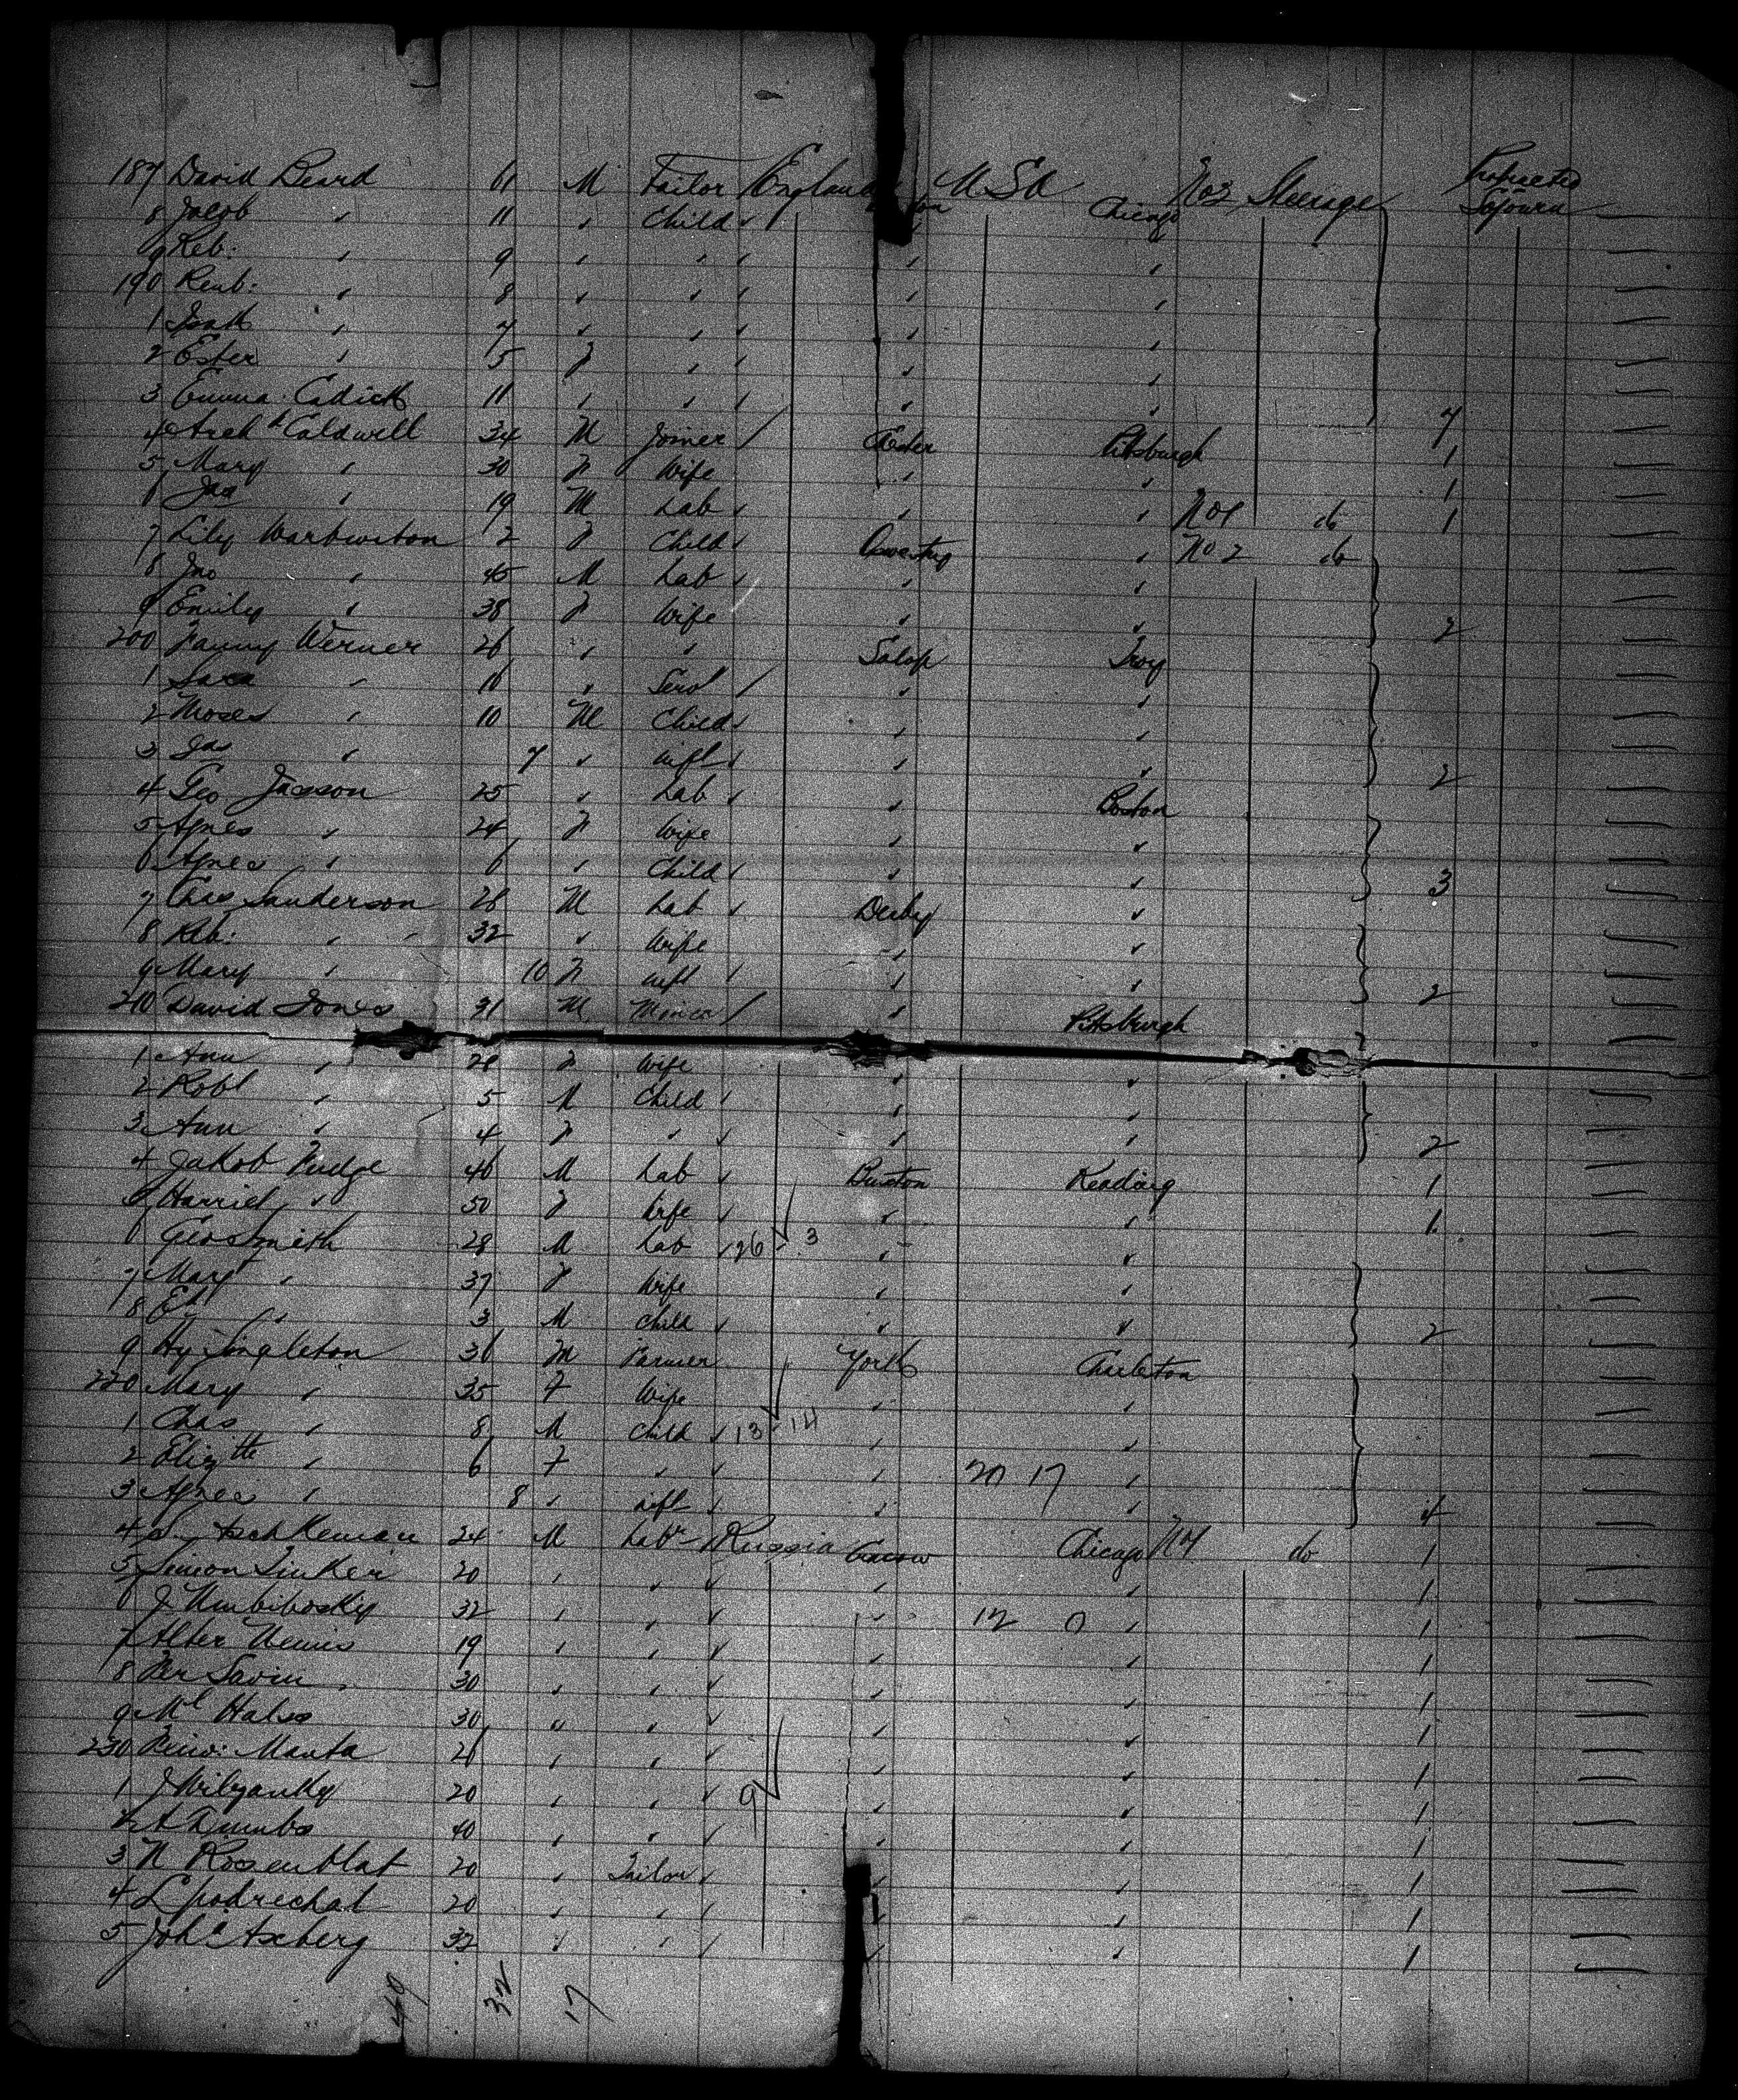 187 David Beard 61 M Tailor England U.S.A No 2 Steerage Protracted Sojourn
8 Jacob " 11 " Child " Chicago "
9 Reb: " 9 " " " "
190 Reub: " 8 " " " "
1 " 7 " " " "
2 Ester " 5 F " " "
3 Emma Cadick 11 " " " " 7
4 Archd Caldwell 34 M Joiner Chester Pittsburgh 1
5 Mary " 30 F Wife " " 1
6 Jas " 19 M Lab " " No 1 do 1
7 Lily Warburton 2 F Child Oswestry " No 2 do
8 Jno " 45 M Lab " "
9 Emily " 38 F Wife " " 2
200 Fanny Werner 26 " " Salop Troy
1 Sara " 16 " Servt " "
2 Moses " 10 M Child " "
3 Jas " 7 " inft " " 2
4 Geo Jasson 25 " Lab " Boston
5 Agnes " 24 F Wife " "
6 Agnes " 6 " Child " " 3
7 Chas Sanderson 28 M Lab Derby "
8 Reb: " 32 " Wife " "
9 Mary " 10 F inft " " 2
210 David Jones 31 M Miner " Pittsburgh
1 Ann " 28 F Wife " "
2 Robt " 5 M Child " "
3 Ann " 4 F " " " 2
4 Jakob Fudge 46 M Lab Buxton Reading 1
5 Harriet " 50 F Wife " " 1
6 Geo Smith 28 M Lab 26 3 " "
7 Mary " 37 F Wife " "
8 " 3 M Child " " 2
9 Hy Singleton 36 M Farmer York Charleston
220 Mary " 35 F Wife " "
1 Chas " 8 M Child 13 14 " "
2 Elizth " 6 F " " 20 17 "
3 Agnes " 8 " inft " " 4
4 24 M Labr Russia Chicago No 1 do 1
5 Simon Linker 20 " " " " 1
6 32 " " " 12 0 " 1
7 Alter 19 " " " " 1
8 Ber Savin 30 " " " " 1
9 Ml Halss 30 " " " " 1
230 Manta 26 " " " " 1
1 20 " " 9 " " 1
2 A 40 " " " " 1
3 N Rosenblat 20 " Tailor " " 1
4 L podrechat 20 " " " " 1
5 Joh Axberg 32 " " " " 1
49 32 17